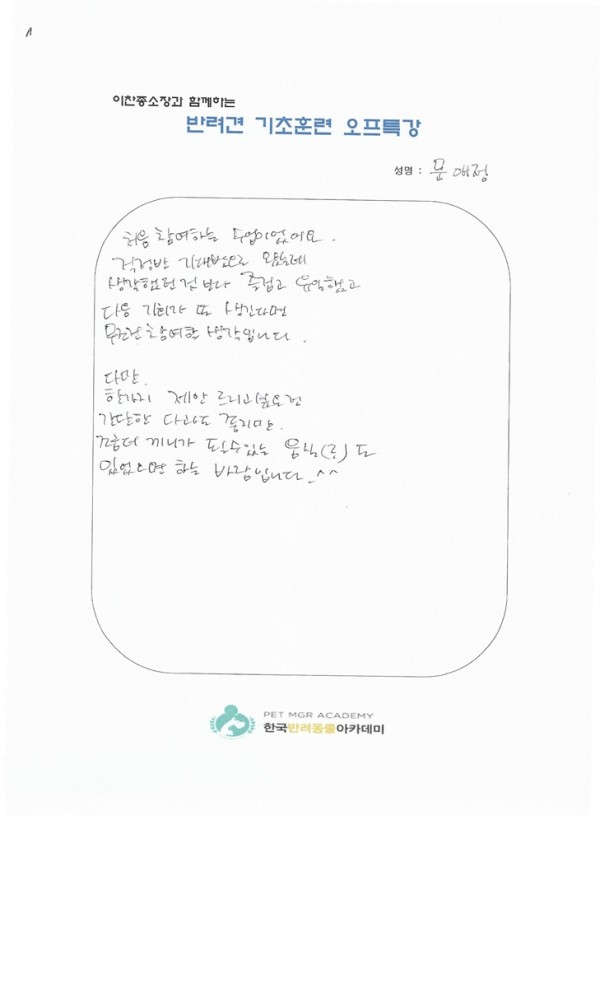 이찬종소장과 함께하는
반려견 기초훈련 오프특강
성명 : 문애정
처음 참여하는 수업이었어요.
걱정반 기대반으로 왔는데
생각했던 것 보다 즐겁고 유익했고
다음 기회가 또 생긴다면
무조건 참여할 생각입니다.
다만.
한가지 제안 드리고싶은건
간단한 다과도 좋지만.
좀더 끼니가 될수있는 음식(류)도
있었으면 하는 바람입니다_^^
PET MGR ACADEMY
한국반려동물아카데미